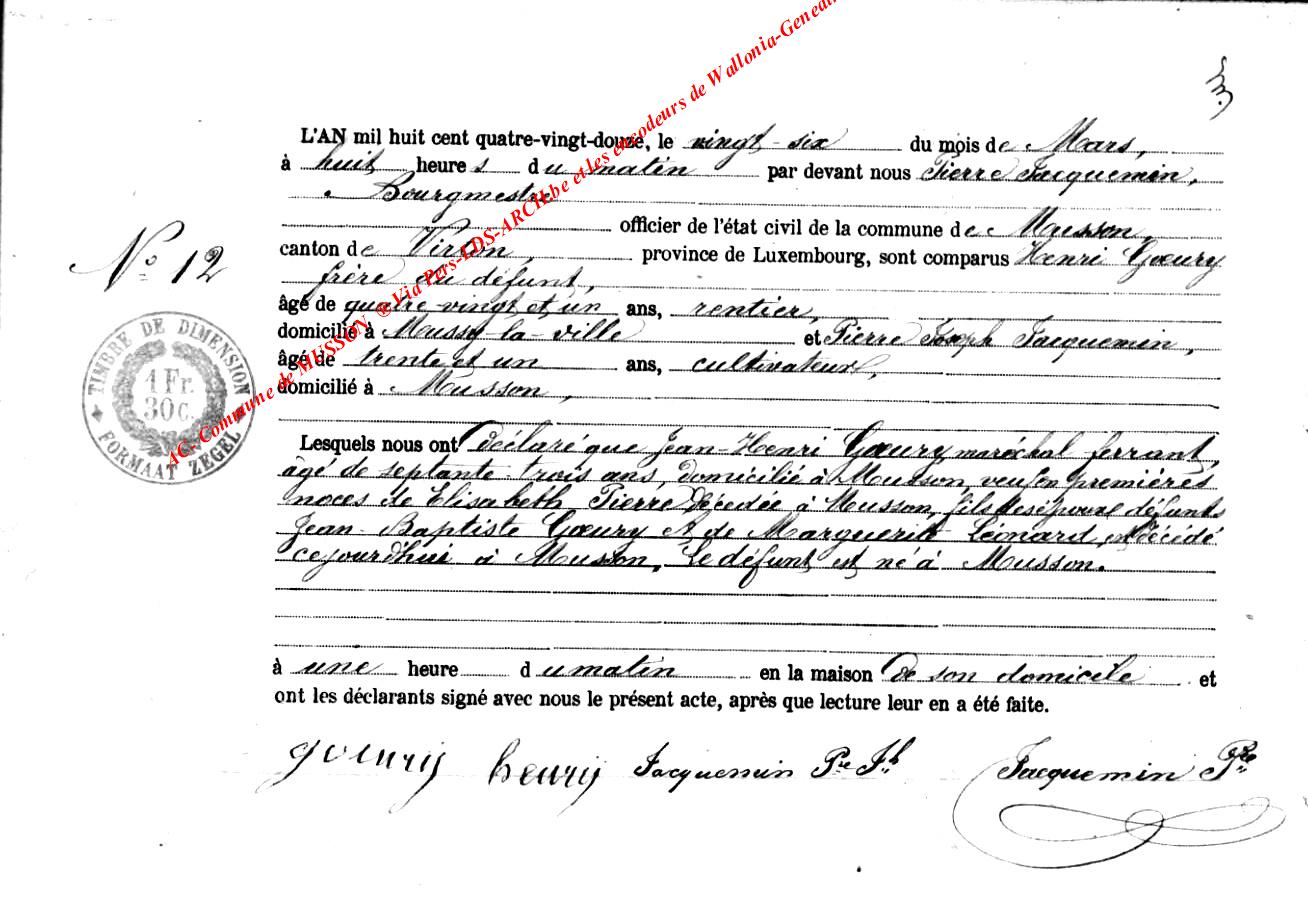 3
L'AN mil huit cent quatre-vingt-douze, le vingt-six du mois de Mars,
à huit heures du matin par devant nous Pierre Jacquemin,
Bourgmestre
officier de l'état civil de la commune de Musson,
canton de Virton, province de Luxembourg, sont comparus Henri Gœury
frère du défunt,
âgé de quatre-vingt et un ans, rentier,
domicilié à Mussy-la-ville et Pierre Joseph Jacquemin,
âgé de trente et un ans, cultivateur,
domicilié à Musson,
N° 12
TIMBRE DE DIMENSION
1 Fr.
30 c.
FORMAAT ZEGEL
AG. Commune de MUSSON ® Via Pers-LDS-ARCH.be et les encodeurs de Wallonia-Geneal
Lesquels nous ont déclaré que Jean-Henri Gœury maréchal ferrant,
âgé de septante-trois ans, domicilié à Musson, veuf en premières
noces de Elisabeth Pierre décédée à Musson, fils des époux défunts
Jean-Baptiste Gœury et de Marguerite Léonard, est décédé
cejourd'hui à Musson. Le défunt est né à Musson.
à une heure du matin en la maison de son domicile et
ont les déclarants signé avec nous le présent acte, après que lecture leur en a été faite.
gouury henriy Jacquemin Pre Jh Jacquemin Pre